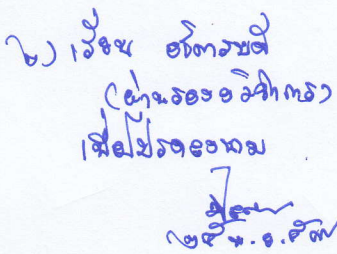 ๒) เรียน อธิการบดี
(ผ่านรองอธิการ)
เพื่อโปรดลงนาม
๒๕ พ.ย. ๕๗